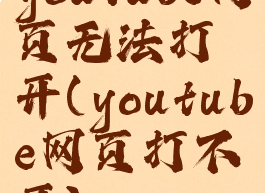 youtube网
页无法打
开(youtub
e网页打不
开)